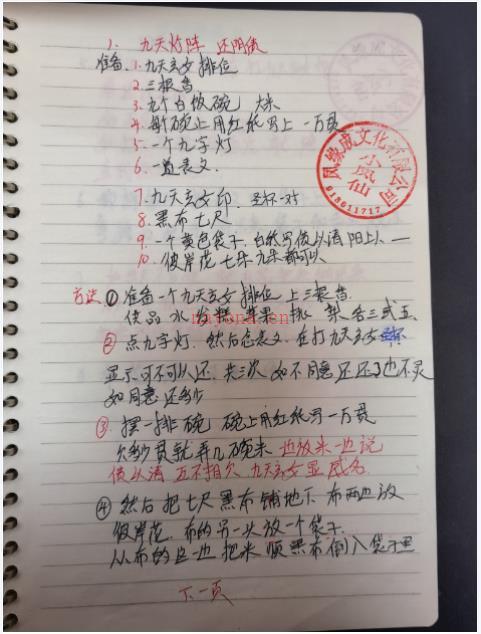 1. 九天灯阵 还阴债
准备.1.九天玄女 排位
2.三根香
3.九个白饭碗 大米
4.每碗上用红纸写上 一万贯
5.一个九字灯
6.一道表文.
7.九天玄女印. 圣杯一对
8.黑布七尺
9.一个黄色袋子.白纸写债以清 阳上以一
10.彼岸花 七朵九朵都可以
方法 ① 准备一个九天玄女 排位 上三根香.
供品 水 发糕 苹果 桃 各三或五.
② 点九字灯.然后念表文.在打九天玄女
显示可不可以还.共三次 如不同意还 还了也不灵
如同意 还多少
③ 摆一排碗 碗上用红纸写一万贯
欠多少贯就弄几碗米 边放米一边说
债以清 互不相欠 九天玄女显威名.
④ 然后 把七尺 黑布铺地下 布两边放
彼岸花.布的另一头放一个袋子.
从布的这一边 把米 顺黑布倒入袋子里
下一页
凤缘成文化有限公司
小凤仙
918611717
nayona.cn